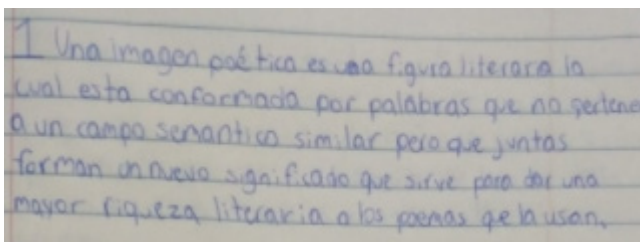 1 Una imagen poética es una figura literara la
cual esta conformada por palabras que no pertene
a un campo semantico similar pero que juntas
forman un nuevo significado que sirve para dar una
mayor riqueza literaria a los poemas qe la usan.